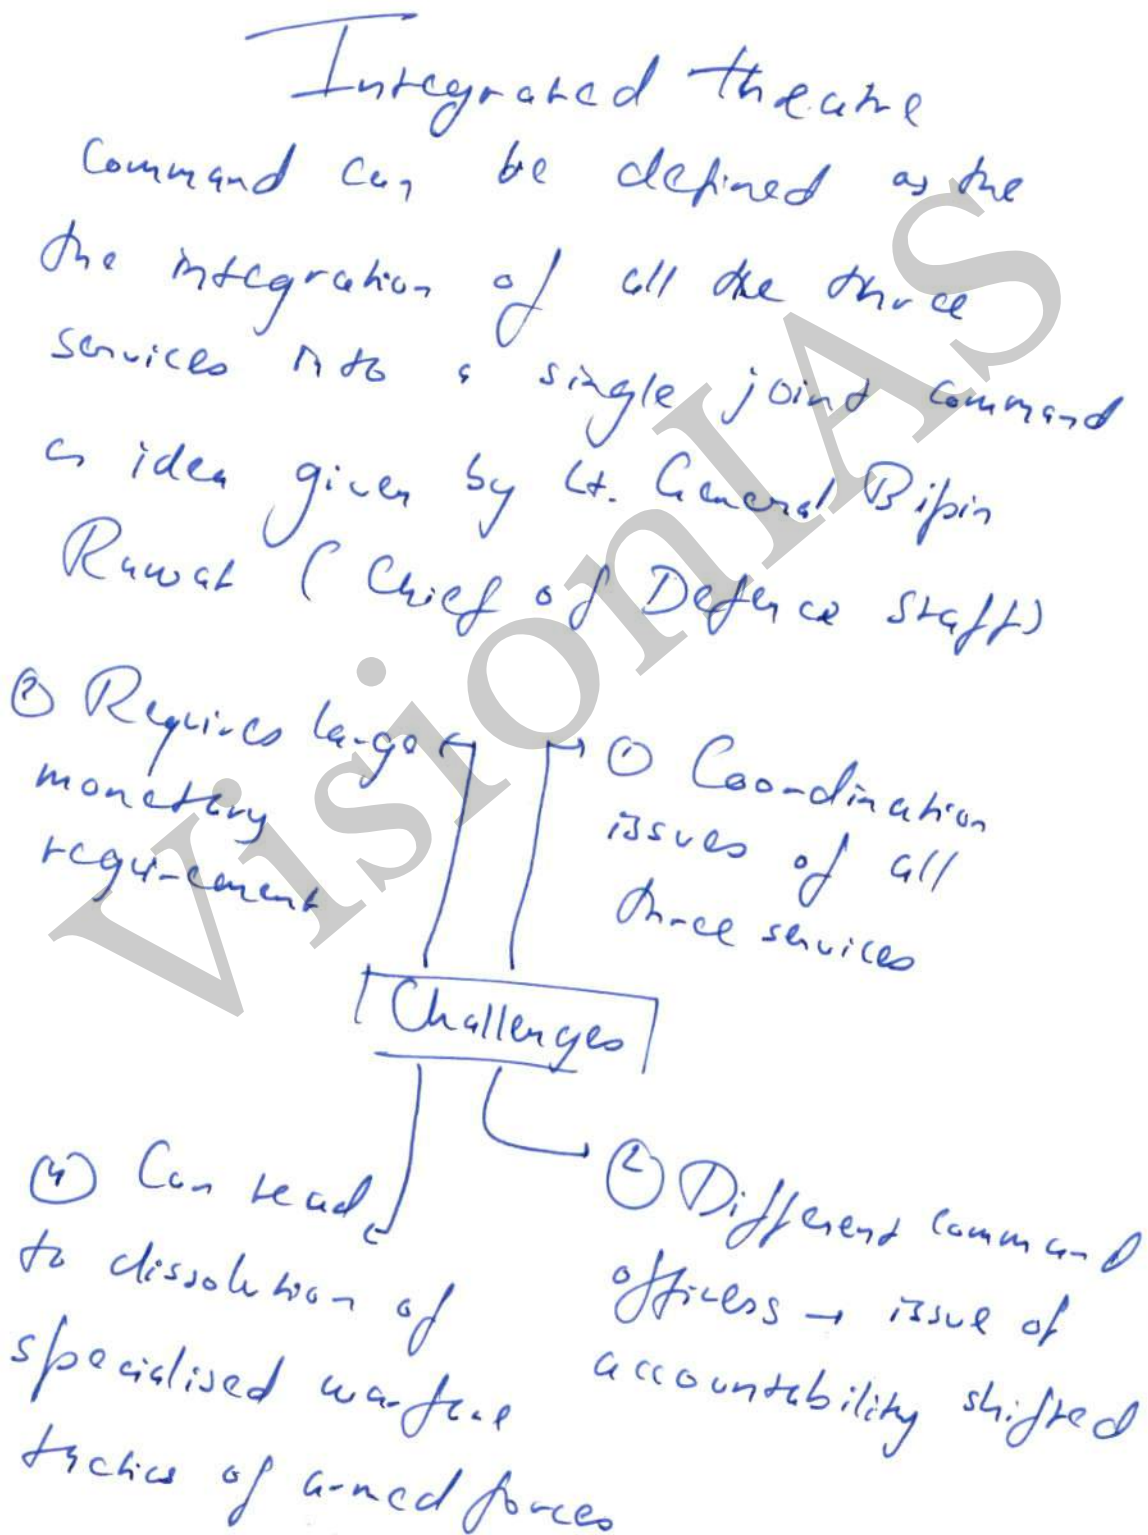 Integrated theatre
Command can be defined as the
the integration of all the three
services into a single joint command
as idea given by Lt. General Bipin
Rawat (Chief of Defence Staff)
③ Requires large
monetary
requirement
① Coordination
issues of all
three services
Challenges
④ Can lead
to dissolution of
specialised warfare
tactics of armed forces
② Different command
officers → issue of
accountability shifted
VisionIAS